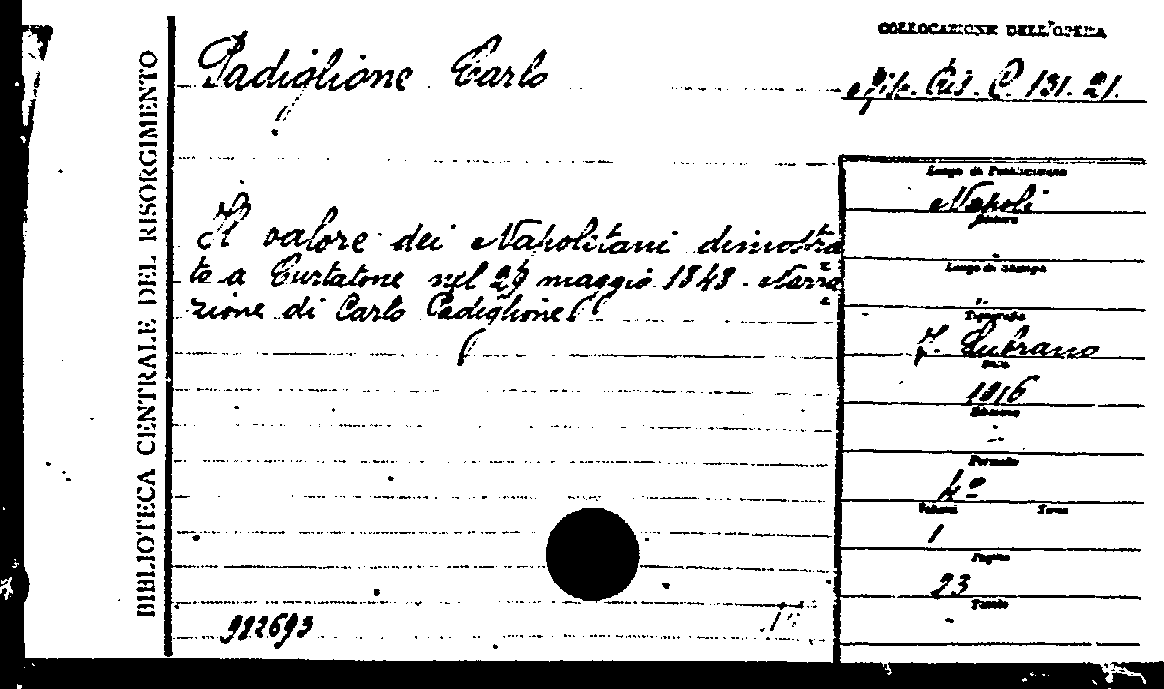 BIBLIOTECA CENTRALE DEL RISORGIMENTO
Padiglione Carlo
COLLOCAZIONE DELL'OPERA
C. 131. 21.
Il valore dei Napolitani dimostra
to a Curtatone nel 29 maggio 1848. Narra
zione di Carlo Padiglione.
Luogo di Pubblicazione
Napoli
Editore
-
Luogo di Stampa
Tipografia
F. Lubrano
Data
1916
Edizione
-
Formato
4º
Volumi Tomo
1
Pagine
23
Tavole
-
982693